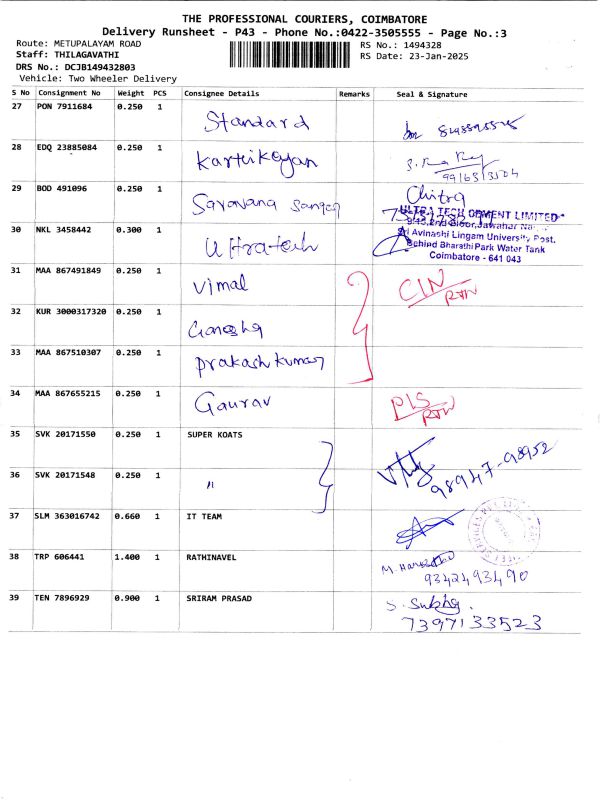 THE PROFESSIONAL COURIERS, COIMBATORE
Delivery Runsheet - P43 - Phone No.:0422-3505555 - Page No.:3
Route: METUPALAYAM ROAD RS No.: 1494328
Staff: THILAGAVATHI RS Date: 23-Jan-2025
DRS No.: DCJB149432803
Vehicle: Two Wheeler Delivery
S No Consignment No Weight PCS Consignee Details Remarks Seal & Signature
27 PON 7911684 0.250 1 Standard
28 EDQ 23885084 0.250 1 Kartikeyan
29 BOD 491096 0.250 1 Saravana Chitra
30 NKL 3458442 0.300 1 Ultratech ULTRA TECH CEMENT LIMITED
Sri Avinashi Lingam University Post,
Behind Bharathi Park Water Tank
Coimbatore - 641 043
31 MAA 867491849 0.250 1 Vimal CIN
RTN
32 KUR 3000317320 0.250 1 Ganesha
33 MAA 867510307 0.250 1 Prakash kumar
34 MAA 867655215 0.250 1 Gaurav PIS
RTN
35 SVK 20171550 0.250 1 SUPER KOATS
36 SVK 20171548 0.250 1 " 98947-98952
37 SLM 363016742 0.660 1 IT TEAM
38 TRP 606441 1.400 1 RATHINAVEL M.
9342493490
39 TEN 7896929 0.900 1 SRIRAM PRASAD S. Subha.
7397133523